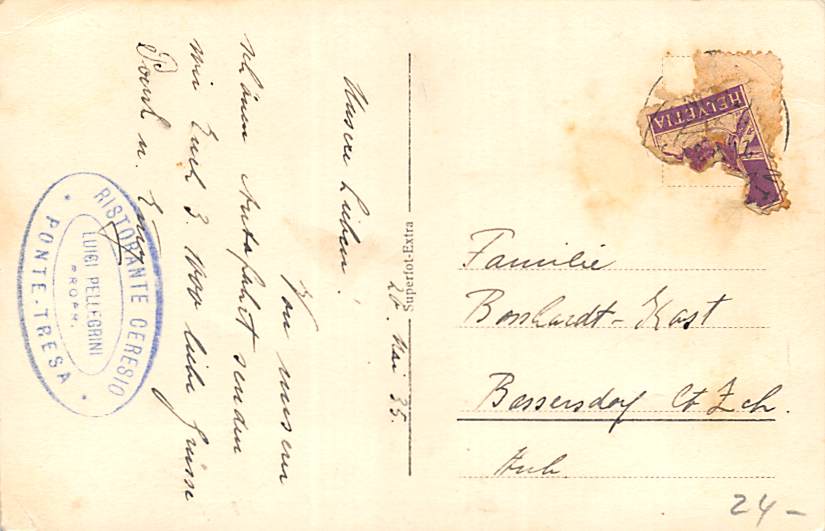 Unsere Lieben!
Von unserer
schönen Autofahrt senden
wir Euch 3. 1000 liebe Grüsse
Paul u.
20. Mai 35.
Superfot-Extra
RISTORANTE CERESIO
LUIGI PELLEGRINI
PROPR.
PONTE-TRESA
HELVETIA
Familie
Bosshardt-Kast
Bassersdorf Ct Zch.
24-